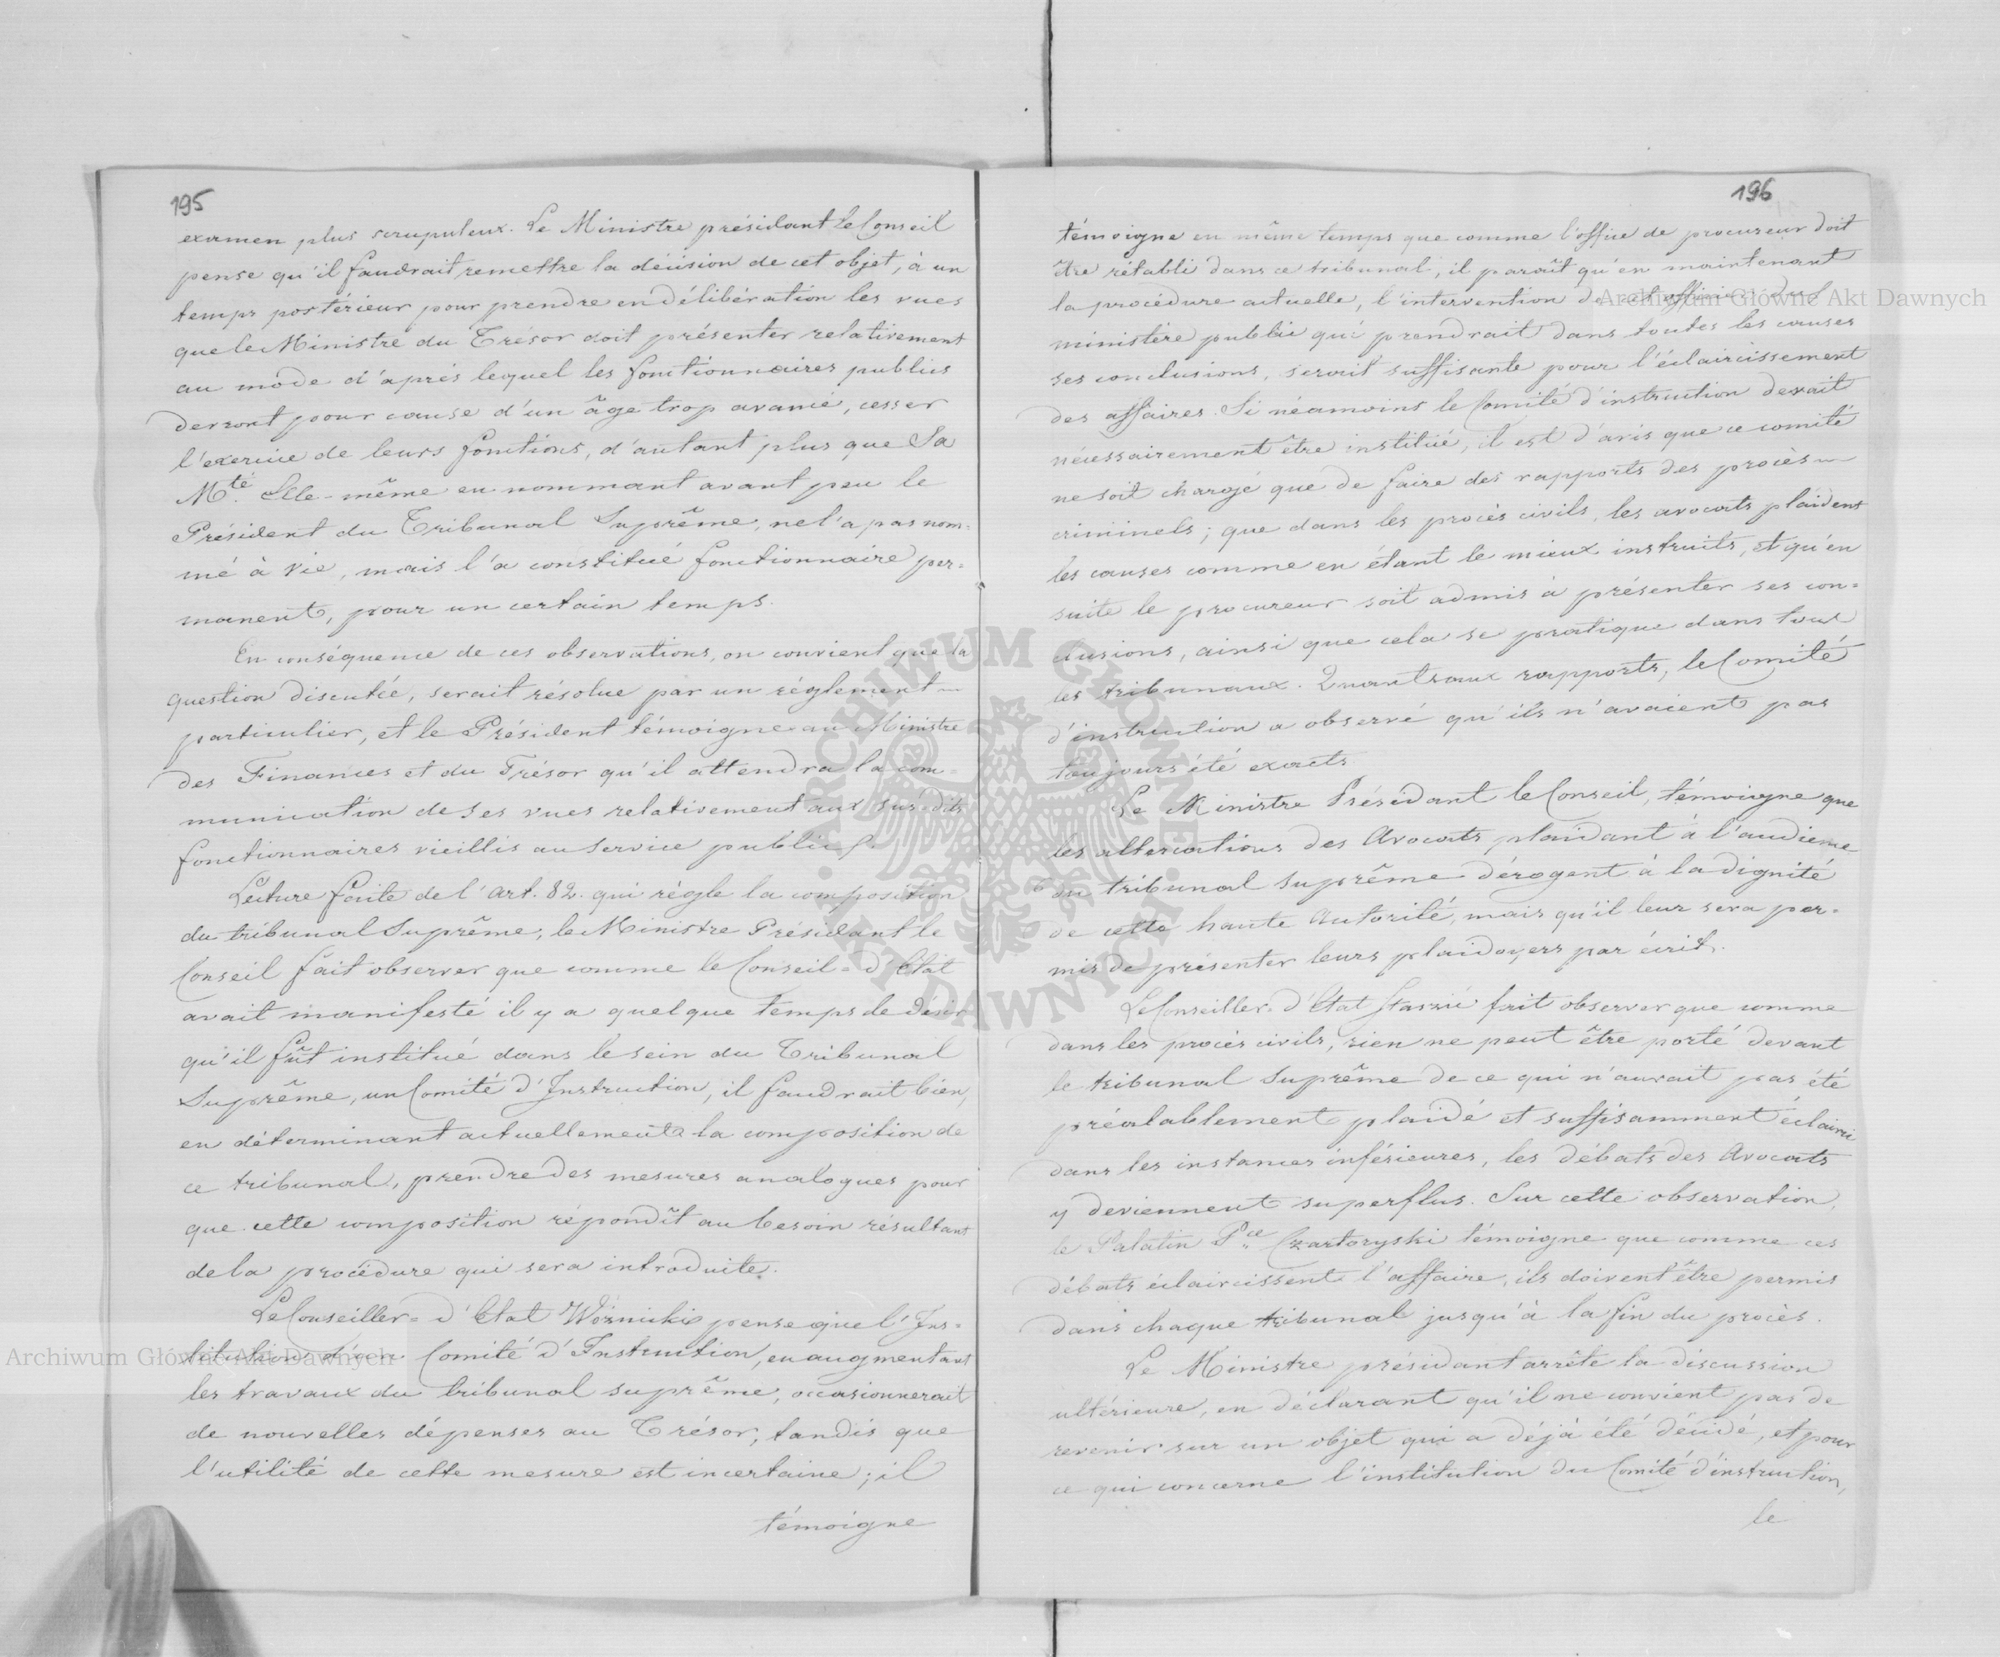 195
examen plus scrupuleux. Le Ministre présidant le Conseil
pense qu'il faudrait remettre la décision de cet objet, à un
temps postérieur pour prendre en délibération les vues
que le Ministre du Trésor doit présenter relativement
au mode d'après lequel les fonctionnaires publics
devront pour cause d'un âge trop avancé, cesser
l'exercice de leurs fonctions, d'autant plus que Sa
Mté Elle-même en nommant avant peu le
Président du Tribunal Suprême, ne l'a pas nom=
mé à vie, mais l'a constitué fonctionnaire per=
manent, pour un certain temps.
En conséquence de ces observations, on convient que la
question discutée, serait résolue par un réglement
particulier, et le Président témoigne au Ministre
des Finances et du Trésor qu'il attendra la com=
munication de ses vues relativement aux susdits
fonctionnaires vieillis au service public.
Lecture faite de l'art. 82. qui règle la composition
du tribunal Suprême, le Ministre Présidant le
Conseil fait observer que comme le Conseil=d'Etat
avait manifesté il y a quelque temps le désir
qu'il fût institué dans le sein du Tribunal
Suprême, un Comité d'Instruction, il faudrait bien,
en déterminant actuellement la composition de
ce tribunal, prendre des mesures analogues pour
que cette composition répondît au besoin résultant
de la procédure qui sera introduite.
Le Conseiller=d'Etat Woźnicki pense que l'Ins=
titution d'un Comité d'Instruction, en augmentant
les travaux du tribunal suprême, occasionnerait
de nouvelles dépenses au Trésor, tandis que
l'utilité de cette mesure est incertaine; il
témoigne
196
témoigne en même temps que comme l'office de procureur doit
être rétabli dans ce tribunal, il paraît qu'en maintenant
la procédure actuelle, l'intervention de cet officier du
ministère public qui prendrait dans toutes les causes
ses conclusions, serait suffisante pour l'éclaircissement
des affaires. Si néamoins le Comité d'instruction devait
nécessairement être institué, il est d'avis que ce comité
ne soit chargé que de faire des rapports des procès
criminels; que dans les procès civils, les avocats plaident
les causes comme en étant le mieux instruits, et qu'en
suite le procureur soit admis à présenter ses con=
clusions, ainsi que cela se pratique dans tous
les tribunaux. Quant aux rapports, le Comité
d'instruction a observé qu'ils n'avaient pas
toujours été exacts
Le Ministre Présidant le Conseil, témoigne que
les altercations des Avocats plaidant à l'audience
du tribunal suprême dérogent à la dignité
de cette haute autorité, mais qu'il leur sera per=
mis de présenter leurs plaidoyers par écrit.
Le Conseiller=d'Etat Staszic fait observer que comme
dans les procès civils, rien ne peut être porté devant
le tribunal Suprême de ce qui n'aurait pas été
préalablement plaidé et suffisamment éclairci
dans les instances inférieures, les débats des Avocats
y deviennent superflus. Sur cette observation,
le Palatin Pce Czartoryski témoigne que comme ces
débats éclaircissent l'affaire, ils doivent être permis
dans chaque tribunal jusqu'à la fin du procès.
Le Ministre présidant arrête la discussion
ultérieure, en déclarant qu'il ne convient pas de
revenir sur un objet qui a déjà été décidé, et pour
ce qui concerne l'institution du Comité d'instruction,
le
Archiwum Główne Akt Dawnych
Archiwum Główne Akt Dawnych
ARCHIWUM GŁÓWNE AKT DAWNYCH